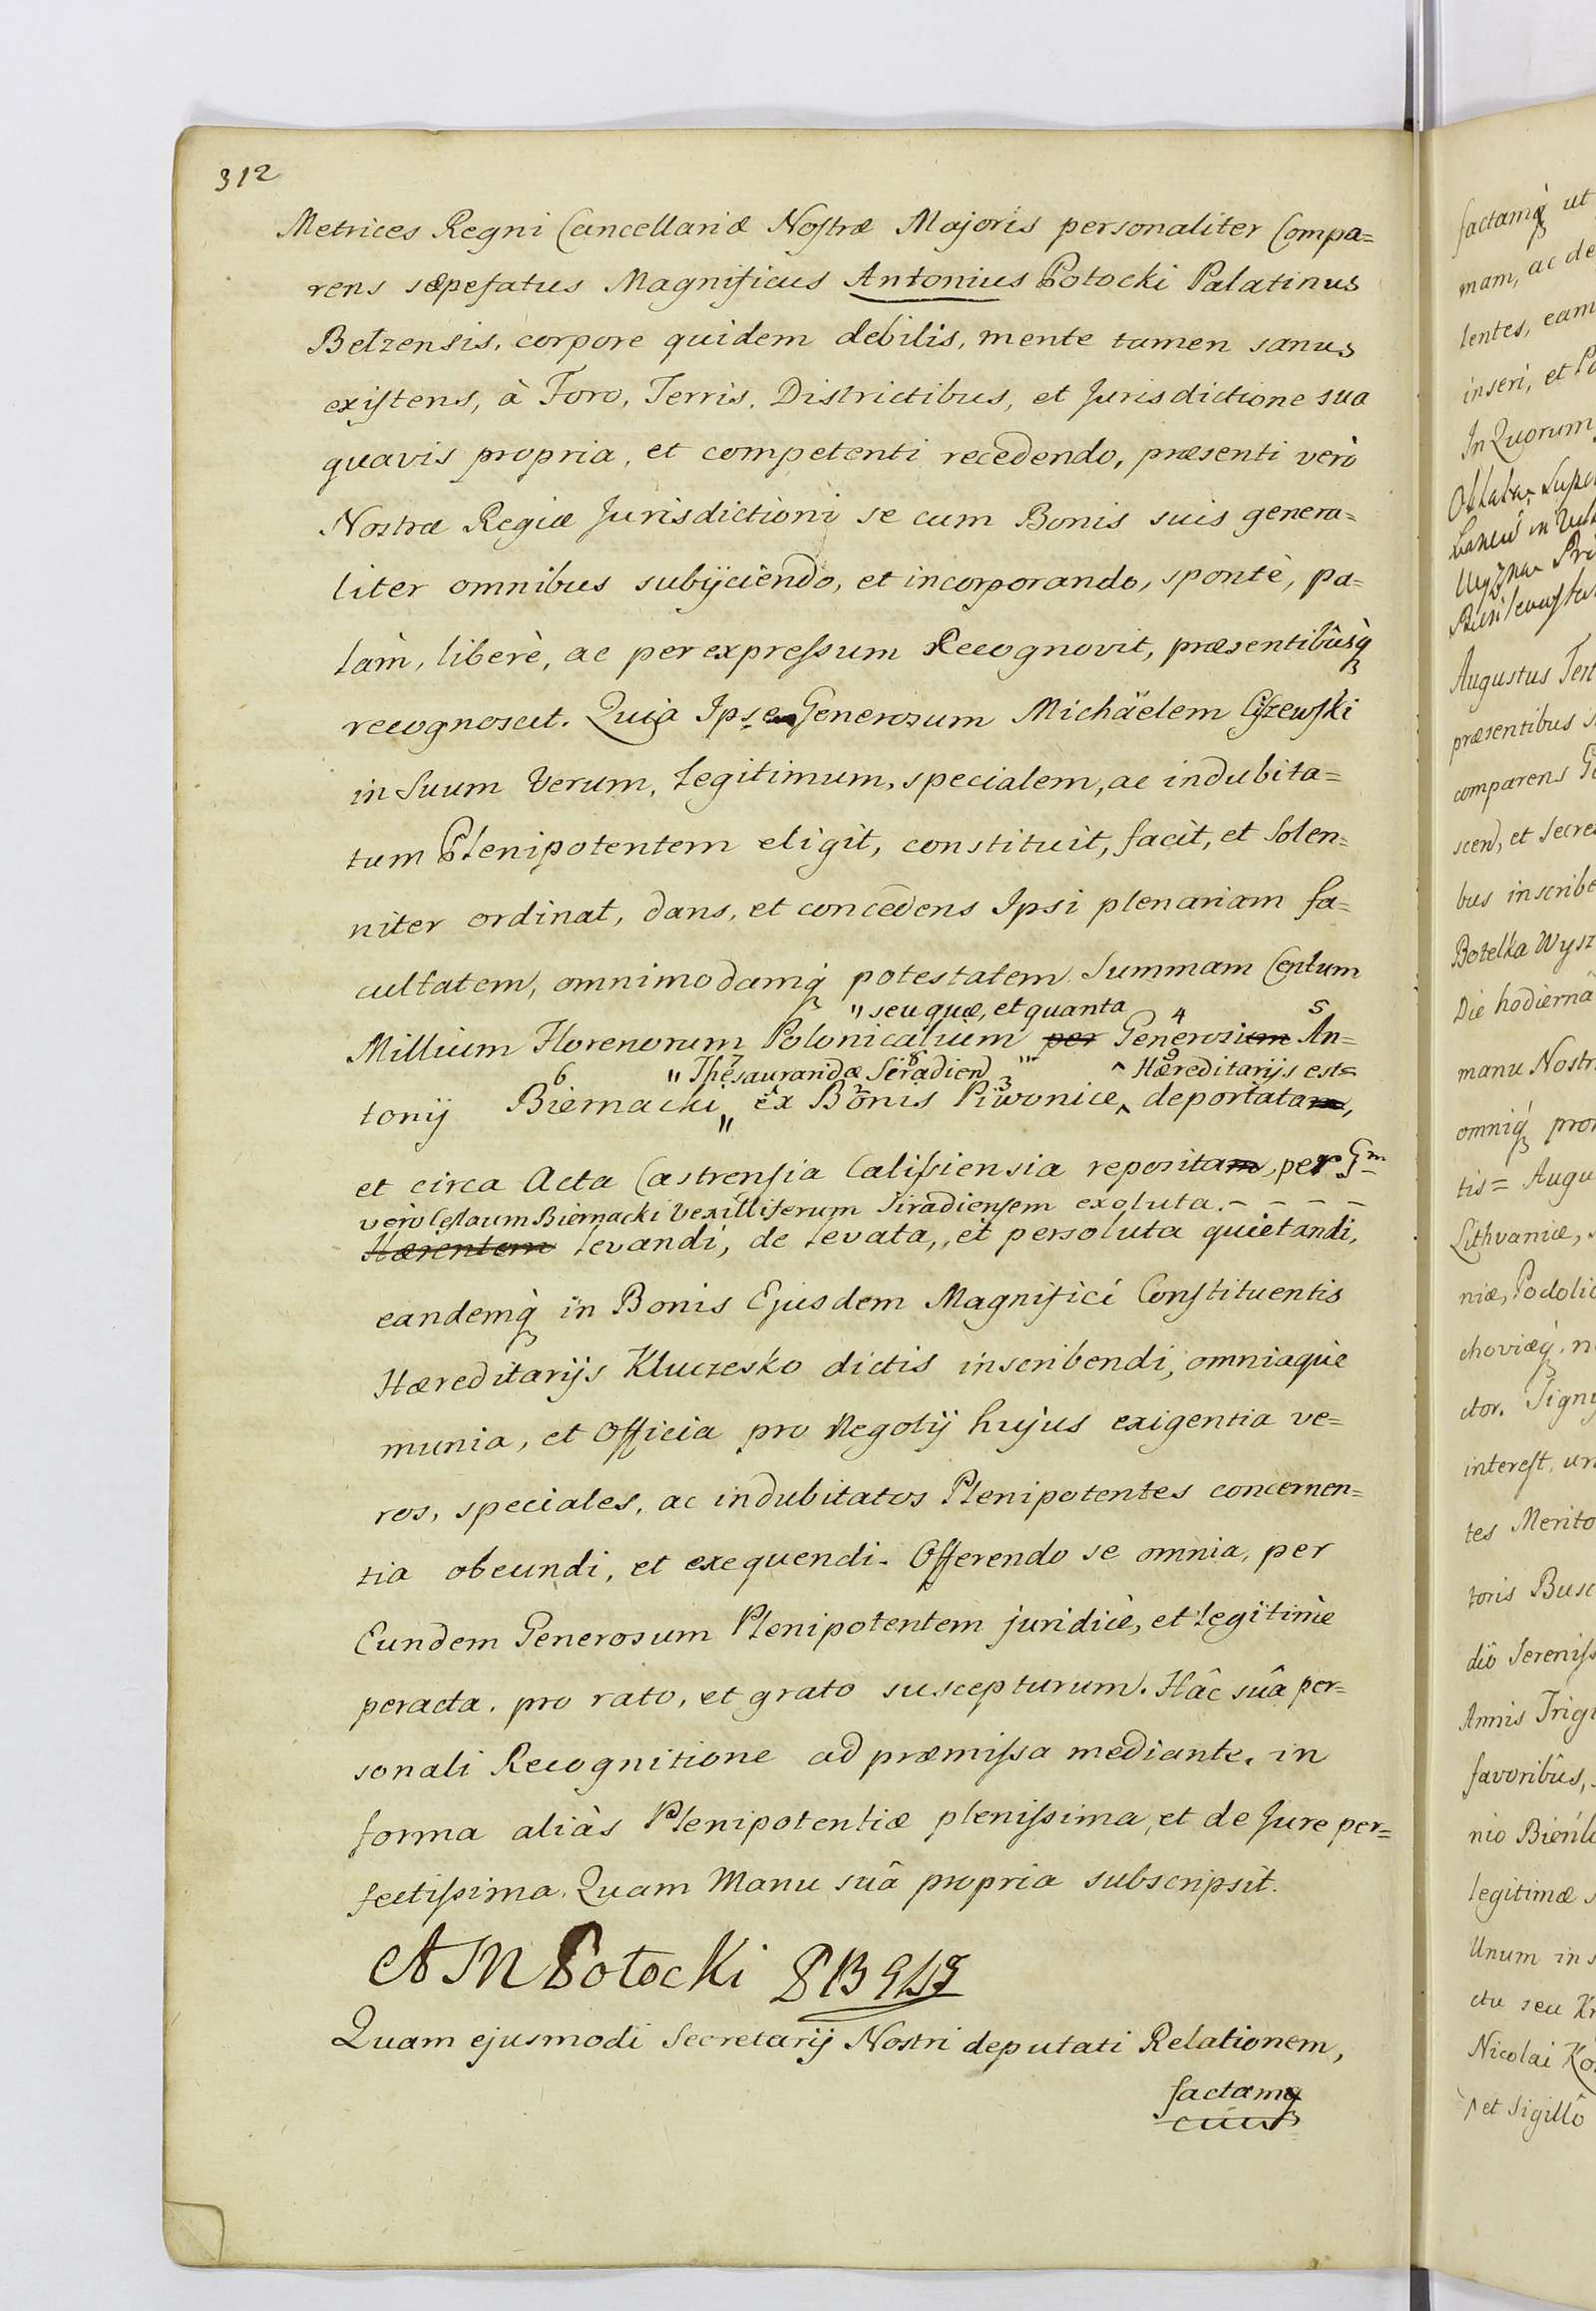 312
Metrices Regni Cancellariæ Nostræ Majoris personaliter Compa=
rens sæpefatus Magnificus Antonius Potocki Palatinus
Belzensis, corpore quidem debilis, mente tamen sanus
existens, à Foro, Terris, Districtibus, et Jurisdictione sua
quavis propria, et competenti recedendo, præsenti verò
Nostræ Regiæ Jurisdictioni se cum Bonis suis genera=
liter omnibus subijciendo, et incorporando, spontè, pa=
làm, liberè, ac per expressum Recognovit, præsentibusq̀
recognoscit. Quia Ipse Generosum Michäelem Cyszewski
in Suum Verum, Legitimum, specialem, ac indubita=
tum Plenipotentem eligit, constituit, facit, et Solen=
niter ordinat, dans, et concedens Ipsi plenariam fa=
cultatem, omnimodamq̀ potestatem Summam Centum
" seu quæ, et quanta 4 5
Millium Florenorum Polonicalium per Generosium An=
6 " 7 Thesaurandæ Siradien 8 " ^ 9 Hæreditarijs est=
tonij Biernacki " 1 ex 2 Bonis 3 Piwonice ^ deportatam,
et circa Acta Castrensia Calissiensia repositam, per Gm
verò Ceslaum Biernacki Vexilliferum Siradiensem exoluta. - - - -
Hærentem levandi, de levata, et persoluta quietandi,
eandemq̀ in Bonis Ejusdem Magnifici Constituentis
Hæreditarijs Kluczesko dictis inscribendi, omniaque
munia, et Officia pro Negotij hujus exigentia ve=
ros, speciales, ac indubitatos Plenipotentes concernen=
tia obeundi, et exequendi. Offerendo se omnia, per
Eundem Generosum Plenipotentem juridicè, et legitimè
peracta, pro rato, et grato suscepturum. Hâc suâ per=
sonali Recognitione ad præmissa mediante, in
forma aliàs Plenipotentiæ plenissima, et de Jure per=
fectissima. Quam Manu suâ propria subscripsit.
A M Potocki
Quam ejusmodi Secretarij Nostri deputati Relationem,
factamq
cuius
factamq̀ ut
mam, ac de
lentes, eam
inseri, et
In Quorum
Augustus
præsentibus
comparens
scen, et Secre
bus inscribe
Botelka Wysz
Die hodierna
manu Nostr
omniq̀ pro
tis= Augu
Lithvaniæ,
niæ, Podoliæ
choviæq̀, n
ctor. Signi
interest, un
tes Merito
toris Busc
diô Sereniss
Annis Trigi
favoribûs,
nio
legitimæ s
Unum in s
ctu seu Kr
Nicolai
et Sigillô